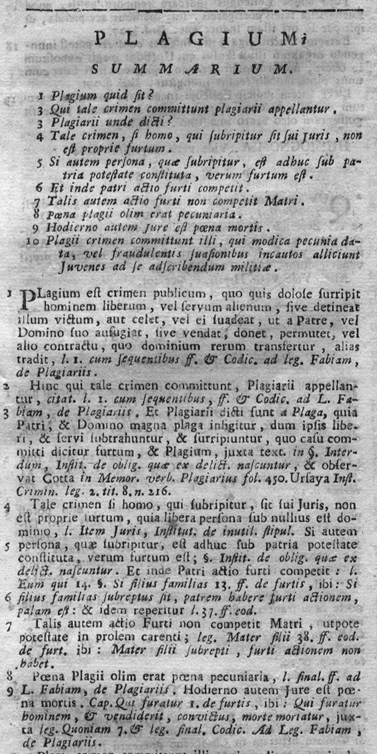 PLAGIUM
SUMMARIUM.
1 Plagium quid ſit?
2 Qui tale crimen committunt plagiarii appellantur.
3 Plagiarii unde dicti?
4 Tale crimen, ſi homo, qui ſubripitur ſit ſui Juris, non
eſt proprie furtum.
5 Si autem perſona, quæ ſubripitur, eſt adhuc ſub pa-
tria poteſtate conſtituta, verum furtum eſt.
6 Et inde patri actio furti competit.
7 Talis autem actio furti non competit Matri.
8 Pœna plagii olim erat pecuniaria.
9 Hodierno autem Jure eſt pœna mortis.
10 Plagii crimen committunt illi, qui modica pecunia da-
ta, vel fraudulentis ſuaſionibus incautos alliciunt
Juvenes ad ſe adſcribendum militiæ.
1 PLagium eſt crimen publicum, quo quis doloſe ſurripit
hominem liberum, vel ſervum alienum, ſive detineat
illum victum, aut celet, vel ei ſuadeat, ut a Patre, vel
Domino ſuo aufugiat, ſive vendat, donet, permutet, vel
alio contractu, quo dominium rerum transfertur, alias
tradit, l. 1. cum ſequentibus ff. & Codic. ad leg. Fabiam,
de Plagiariis.
2 Hinc qui tale crimen committunt, Plagiarii appellan-
tur, citat. l. 1. cum ſequentibus, ff. & Codic. ad L. Fa-
3 biam, de Plagiariis. Et Plagiarii dicti ſunt a Plaga, quia
Patri, & Domino magna plaga infligitur, dum ipſis libe-
ri, & ſervi ſubtrahuntur, & ſurripiuntur, quo caſu com-
mitti dicitur furtum, & Plagium, juxta text. in §. Inter-
dum, Inſtit. de oblig. quæ ex delict. naſcuntur, & obſer-
vat Cotta in Memor. verb. Plagiarius fol. 450. Urſaya Inſt.
Crimin. leg. 2. tit. 8. n. 216.
4 Tale crimen ſi homo, qui ſubripitur, ſit ſui Juris, non
eſt proprie furtum, quia libera perſona ſub nullius eſt do-
minio, l. Item Juris, Inſtitut. de inutil. ſtipul. Si autem
5 perſona, quæ ſubripitur, eſt adhuc ſub patria poteſtate
conſtituta, verum furtum eſt; §. Inſtit. de oblig. quæ ex
delict. naſcuntur. Et inde Patri actio furti competit: l.
Eum qui 14. §. Si filius familias 13. ff. de furtis, ibi: Si
6 filius familias ſubreptus ſit, patrem habere furti actionem,
palam eſt: & idem reperitur l. 37. ff. eod.
7 Talis autem actio Furti non competit Matri, utpote
poteſtate in prolem carenti; leg. Mater filii 38. ff. eod.
de furt. ibi: Mater filii ſubrepti, furti actionem non
habet.
8 Pœna Plagii olim erat pœna pecuniaria, l. final. ff. ad
9 L. Fabiam, de Plagiariis. Hodierno autem Jure eſt pœ-
na mortis. Cap. Qui furatur 1. de furtis, ibi: Qui furatur
hominem, & vendiderit, convictus, morte moriatur, jux-
ta leg. Quoniam 7. & leg. final. Codic. Ad Leg. Fabiam,
de Plagiariis.